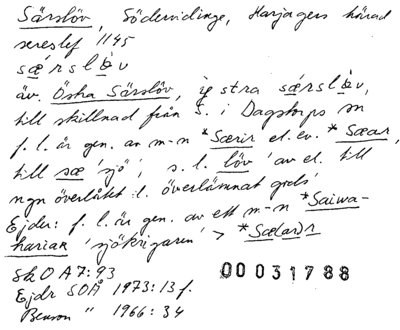 Särslöv, Södervidinge, Harjagers härad
sereslef 1145
særslòv
äv. Östra Särslöv, stra særslòv,
till skillnad från S. i Dagstorps sn
f. l. är gen. av m-n *Særir el. ev. *Sæar,
till sæ 'sjö', s. l. löv 'av el. till
ngn överlåtet l. överlämnat gods'
Ejder: f. l. är gen. av ett m-n *Saiwa-
hariaʀ 'sjökrigaren' > *Sæ(a)r
SkO A7:93
Ejdr SOÅ 1973:13 f.
Benson " 1966:34
00031788